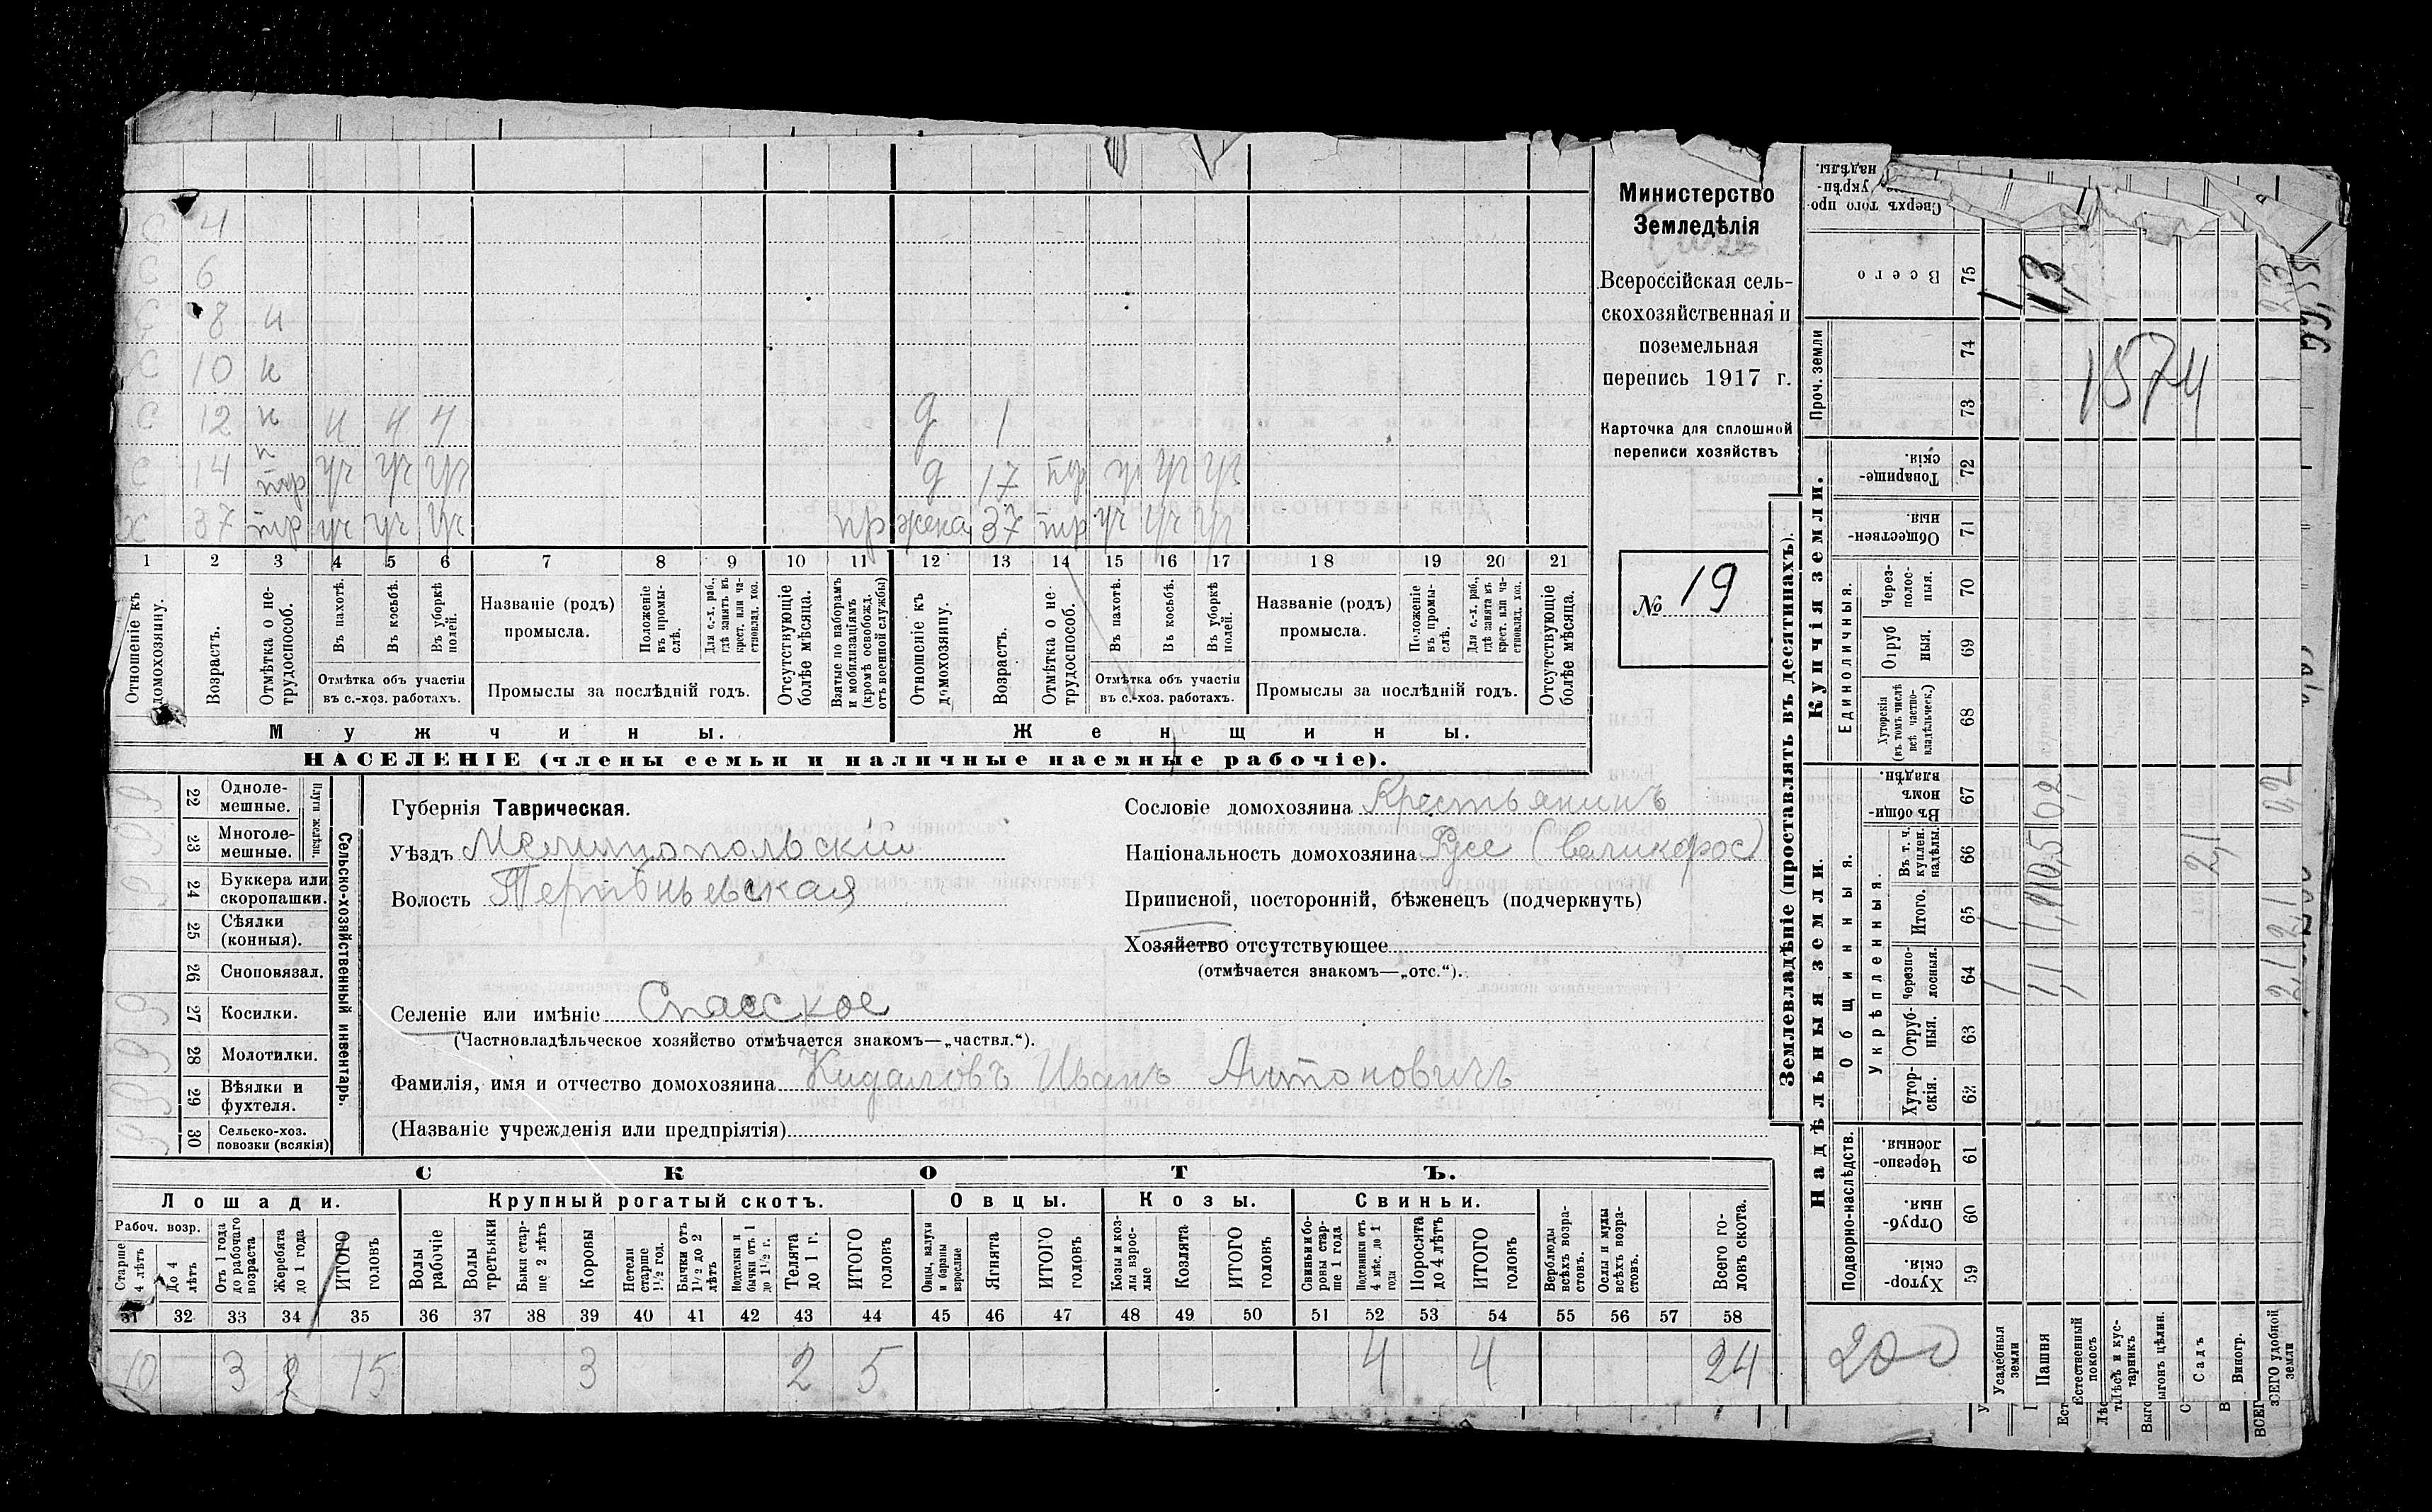 С 4
С 6
С 8 н
С 10 н
С 12 н ч ч ч д 1
С 14 п тр уч уч уч д 17 тр уч уч уч
х 37 тр уч уч уч пр жена 37 тр уч уч уч
1 2 3 4 5 6 7 8 9 10 11 12 13 14 15 16 17 18 19 20 21
Отношеніе къ домохозяину.
Возрастъ.
Отмѣтка о нетрудоспособ.
Въ пахотѣ.
Въ косьбѣ.
Въ уборкѣ полей.
Отмѣтка объ участіи
въ с.-хоз. работахъ.
Названіе (родъ)
промысла.
Положеніе въ промыслѣ.
Для с.-х. раб., гдѣ занятъ въ крест. или частновлад. хоз.
Промыслы за послѣдній годъ.
Отсутствующіе болѣе мѣсяца.
Взятые по наборамъ и мобилизаціямъ (кромѣ освобожд. отъ военной службы)
Отношеніе къ домохозяину.
Возрастъ.
Отмѣтка о нетрудоспособ.
Въ пахотѣ.
Въ косьбѣ.
Въ уборкѣ полей.
Отмѣтка объ участіи
въ с.-хоз. работахъ.
Названіе (родъ)
промысла.
Положеніе въ промыслѣ.
Для с.-х. раб., гдѣ занята въ крест. или частновлад. хоз.
Промыслы за послѣдній годъ.
Отсутствующіе болѣе мѣсяца.
Мужчины. Женщины.
НАСЕЛЕНІЕ (члены семьи и наличные наемные рабочіе).
Министерство
Земледѣлія
Всероссійская сель-
скохозяйственная и
поземельная
перепись 1917 г.
Карточка для сплошной
переписи хозяйствъ
№ 19
Сельско-хозяйственный инвентарь.
Плуги желѣзн.
22 Одноле-
мешные.
23 Многоле-
мешные.
24 Буккера или
скоропашки.
25 Сѣялки
(конныя).
26 Сноповязал.
27 Косилки.
28 Молотилки.
29 Вѣялки и
фухтеля.
30 Сельско-хоз.
повозки (всякія)
Губернія Таврическая.
Уѣздъ Мелитопольскій
Волость
Сословіе домохозяина Крестьянинъ
Національность домохозяина Русс (великорос)
Приписной, посторонній, бѣженецъ (подчеркнуть)
Хозяйство отсутствующее
(отмѣчается знакомъ—„отс.“).
Селеніе или имѣніе Спасское
(Частновладѣльческое хозяйство отмѣчается знакомъ—„частвл.“).
Фамилія, имя и отчество домохозяина Кидаловъ Иванъ Антоновичъ
(Названіе учрежденія или предпріятія)
СКОТЪ.
Лошади. Крупный рогатый скотъ. Овцы. Козы. Свиньи.
Рабоч. возр.
Старше 4 лѣтъ
До 4 лѣтъ
Отъ 1 года до рабочаго возраста
Жеребята до 1 года
ИТОГО головъ
Волы рабочіе
Волы третьяки
Быки старше 2 лѣтъ
Коровы
Нетели старше 1½ год.
Бычки отъ 1½ до 2 лѣтъ
Подтелки и бычки отъ 1 до 1½ г.
Телята до 1 г.
ИТОГО головъ
Овцы, валухи и бараны взрослые
Ягнята
ИТОГО головъ
Козы и козлы взрослые
Козлята
ИТОГО головъ
Свиньи и бороны старше 1 года
Подсвинки отъ 4 мѣс. до 1 года
Поросята до 4 лѣтъ
ИТОГО головъ
Верблюды всѣхъ возрастовъ.
Ослы и мулы всѣхъ возрастовъ.
Всего головъ скота.
31 32 33 34 35 36 37 38 39 40 41 42 43 44 45 46 47 48 49 50 51 52 53 54 55 56 57 58
10 3 2 15 3 2 5 4 4 24
Землевладѣніе (проставлять въ десятинахъ).
Купчія земли.
Надѣльныя земли.
Сверхъ того про-
укрѣп-
надѣлы.
Всего 75
Проч. земли 74 73
Товарище-
скія. 72
Обществен-
ныя. 71
Единоличныя.
Через-
полос-
ныя. 70
Отруб
ныя. 69
Хуторскія
(въ томъ числѣ
всѣ частно-
владѣльческ.) 68
Общинныя.
Въ общи
номъ
владѣн. 67
Укрѣпленныя.
Въ т. ч.
куплен.
надѣлы. 66
Итого. 65
Черезпо-
лосныя. 64
Отруб-
ныя. 63
Хутор-
скія. 62
Подворно-наслѣдств.
Черезпо-
лосныя. 61
Отруб-
ныя. 60
Хутор-
скія. 59
1574
200
Усадебныя
земли
Пашня
Естественный
покосъ
Лѣсъ и кус-
тарникъ
Выгонъ цѣлин.
Садъ
Виногр.
ВСЕГО удобной
земли